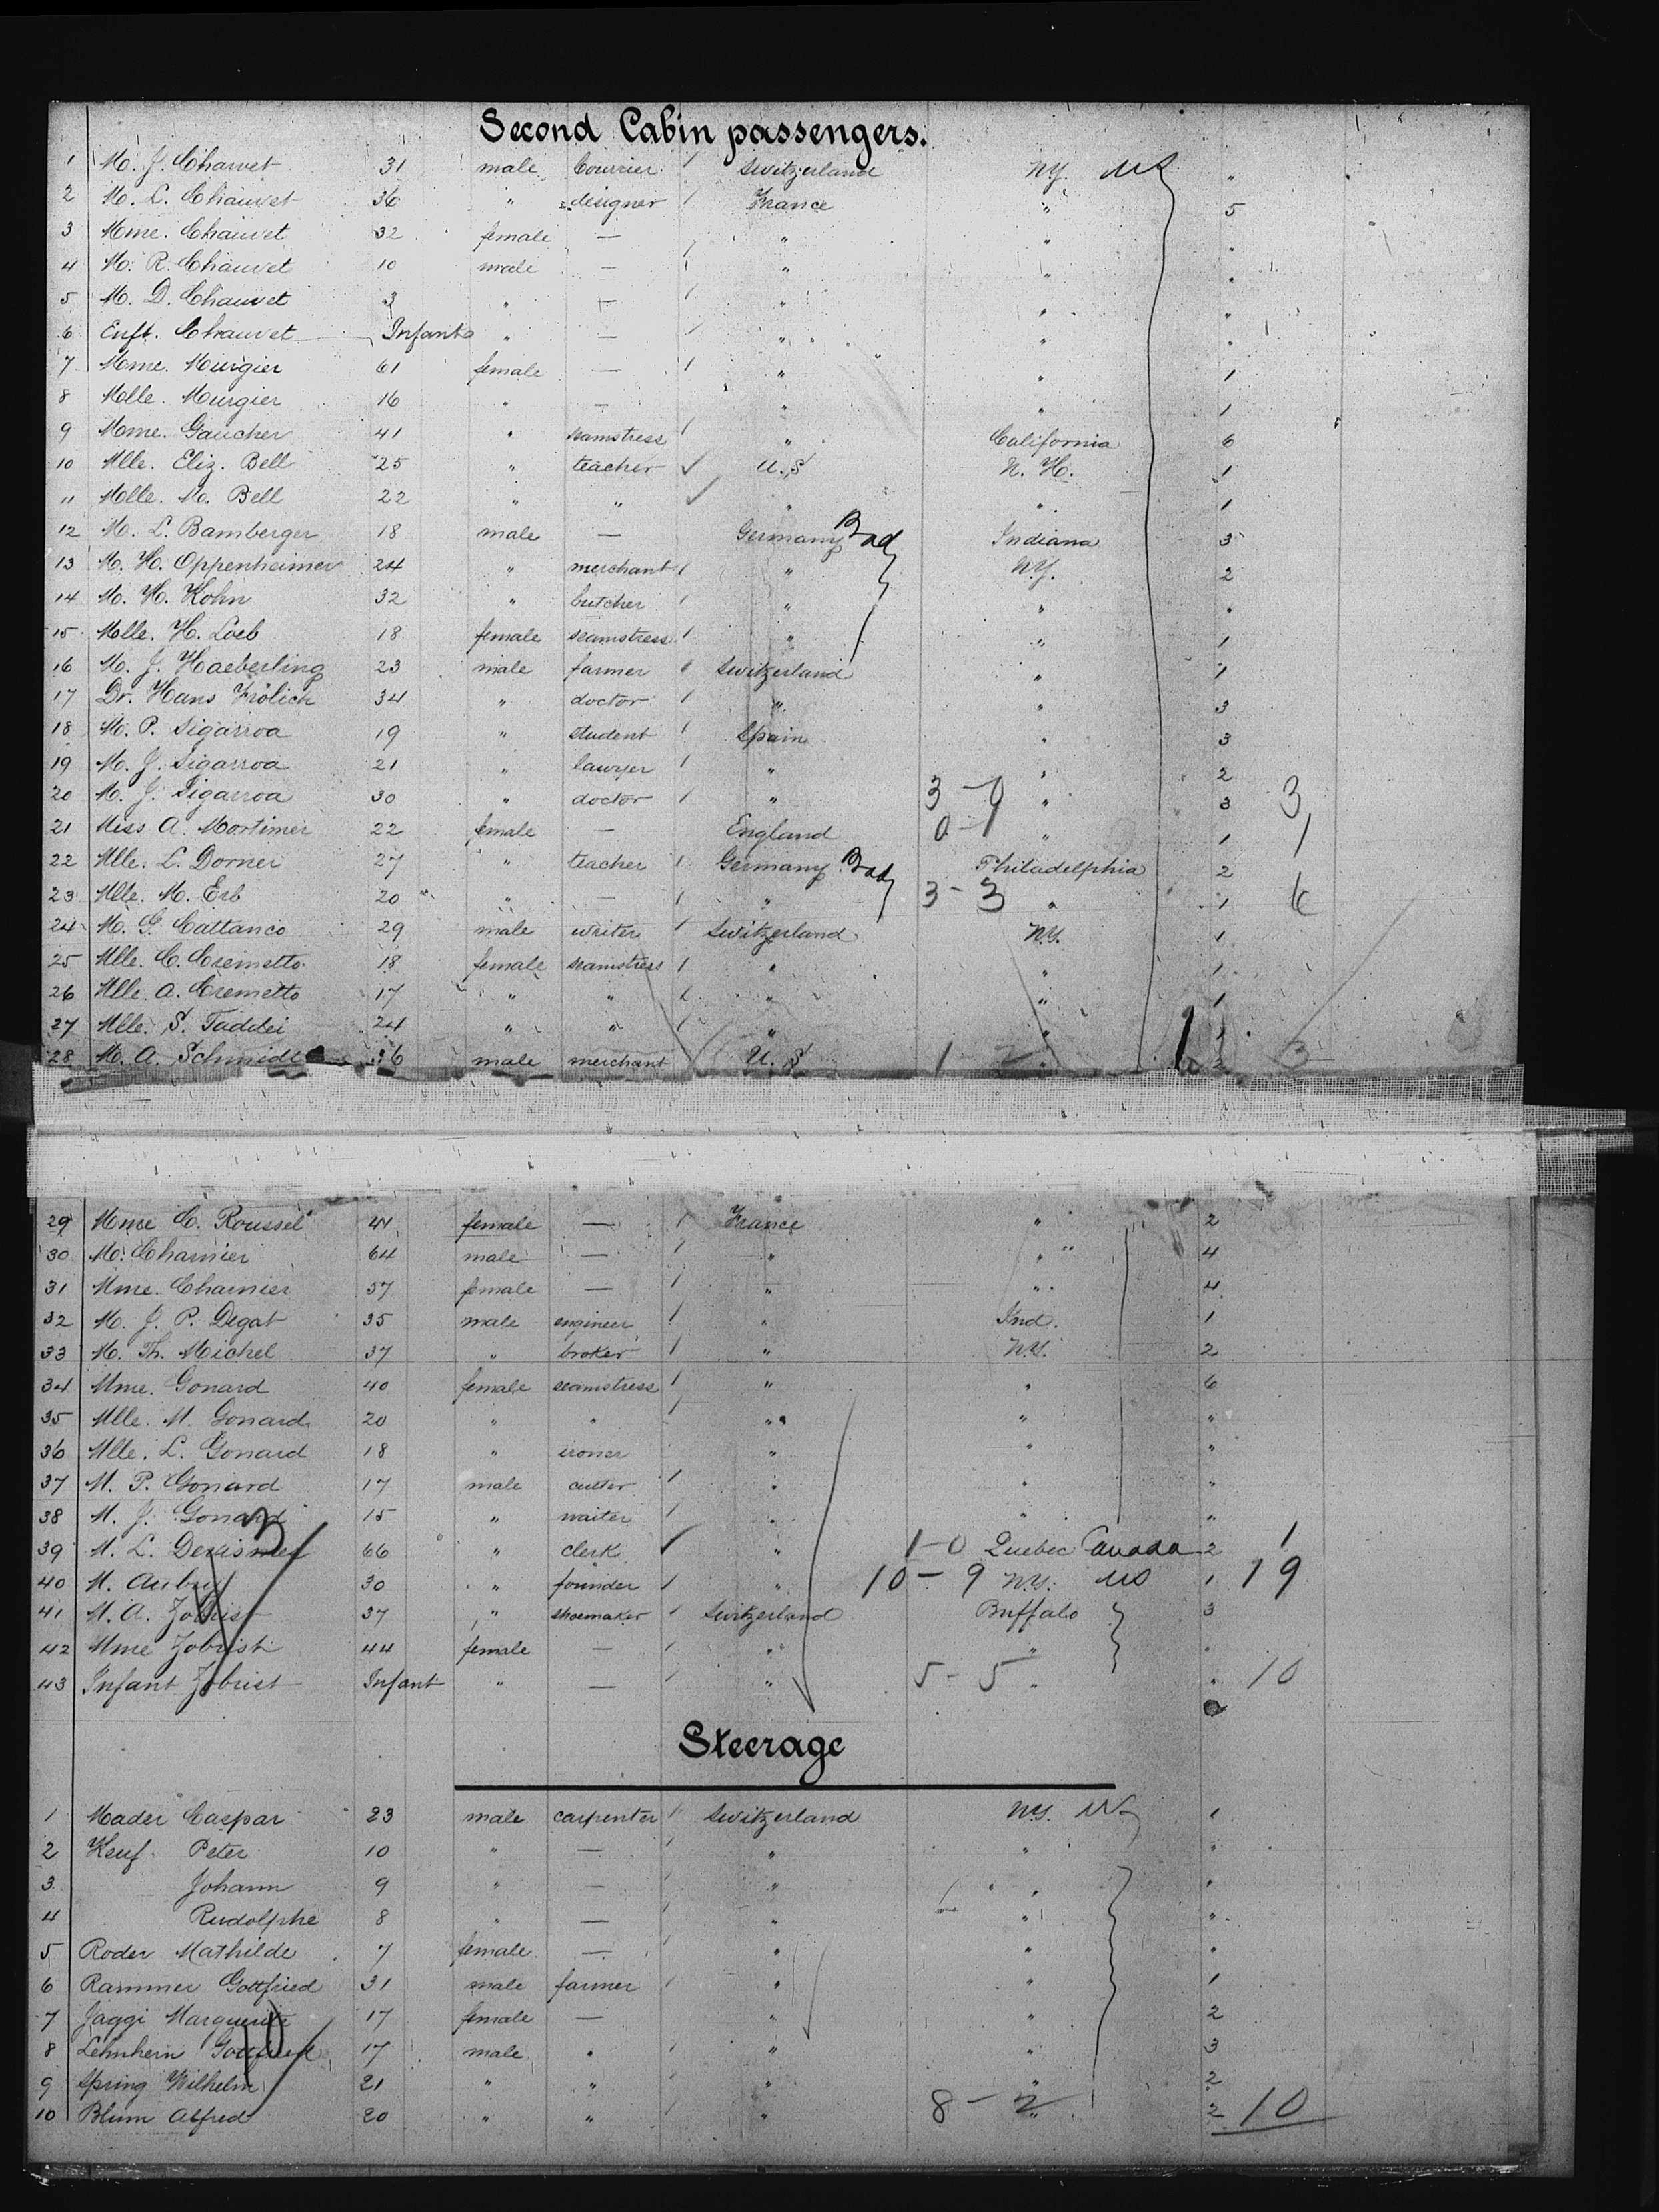 Second Cabin passengers.
1 M. J. Charvet 31 male Courrier Switzerland N.Y. US "
2 M. L. Chauvet 36 " designer France " 5
3 Mme. Chauvet 32 female — " " "
4 M. R. Chauvet 10 male — " " "
5 M. D. Chauvet 3 " — " " "
6 Enft. Chauvet Infant " — " " "
7 Mme. Murgier 61 female — " " 1
8 Melle. Murgier 16 " — " " 1
9 Mme. Gaucher 41 " seamstress " California 6
10 Mlle. Eliz. Bell 25 " teacher U.S N. H. 1
11 Melle. M. Bell 22 " " " " 1
12 M. L. Bamberger 18 male — Germany Bad Indiana 3
13 M. H. Oppenheimer 24 " merchant " N.Y. 2
14 M. H. Kohn 32 " butcher " " "
15 Melle. H. Loeb 18 female seamstress " " 1
16 M. J. Haeberling 23 male farmer Switzerland " 1
17 Dr. Hans Frölich 34 " doctor " " 3
18 M. P. Sigarroa 19 " student Spain " 3
19 M. J. Sigarroa 21 " lawyer " " 2
20 M. J. Sigarroa 30 " doctor " 3 - 0 " 3 3
21 Miss A. Mortimer 22 female — England 0 - 1 " 1 1
22 Mlle. L. Dorner 27 " teacher Germany Bad Philadelphia 2
23 Mlle. M. Erb 20 " — " 3 - 3 " 1 6
24 M. G. Cattanco 29 male writer Switzerland N.Y. 1
25 Mlle. C. Cremetto 18 female seamstress " " 1
26 Mlle. A. Cremetto 17 " " " " 1
27 Mlle. S. Taddei 24 " " " " 1
28 M. A. Schmidt 36 male merchant U. S 1 - 2 " 2 3
29 Mme C. Roussel 41 female — France " 2
30 M. Charnier 64 male — " " 4
31 Mme. Charnier 57 female — " " 4
32 M. J. P. Degat 35 male engineer " Ind. 1
33 M. Th. Michel 37 " broker " N.Y. 2
34 Mme. Gonard 40 female seamstress " " 6
35 Mlle. M. Gonard 20 " " " " "
36 Mlle. L. Gonard 18 " ironer " " "
37 M. P. Gonard 17 male cutter " " "
38 M. J. Gonard 15 " waiter " " "
39 M. L. 66 " clerk " 1-0 Quebec Canada 2 1
40 M. Aubry 30 " founder " 10 - 9 N.Y. US 1 19
41 M. A. Zobrist 37 " shoemaker Switzerland Buffalo 3
42 Mme Zobrist 44 female — " " "
43 Infant Zobrist Infant " — " 5 - 5 " " 10
Steerage
1 Mader Caspar 23 male carpenter Switzerland N.Y. US 1
2 Keuf Peter 10 " — " " "
3 Johann 9 " — " " "
4 Rudolphe 8 " — " " "
5 Roder Mathilde 7 female — " " "
6 Rammer Gottfried 31 male farmer " " 1
7 Jaggi Marguerite 17 female — " " 2
8 Lehnhern Gottfried 17 male " " " 3
9 Spring Wilhelm 21 " " " " 2
10 Blum Alfred 20 " " " 8 - 2 " 2 10